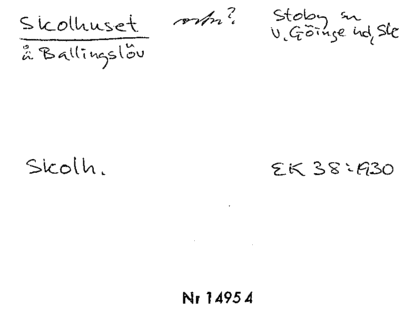 Skolhuset
å Ballingslöv
Stoby sn
V. Göinge hd, Sk
Skolh.
EK 38:1930
Nr 14954